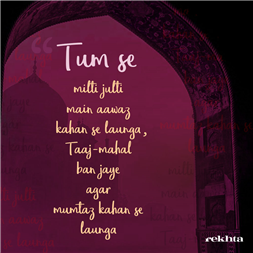 Tum se
milti julti
main aawaz
kahan se launga,
Taaj-mahal
ban jaye
agar
mumtaz kahan se
launga
rekhta